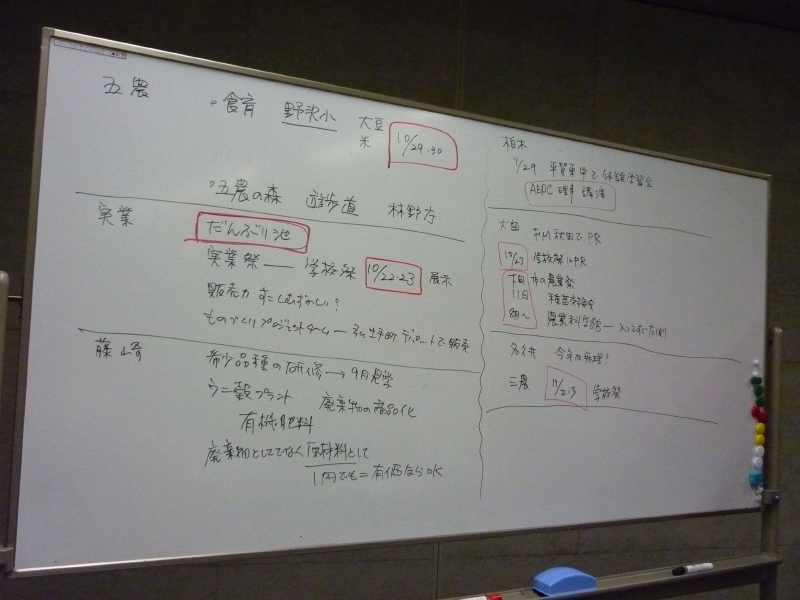 五農
食育 野沢小 大豆
米
10/29.30
五農の森 遊歩道 林野庁
実業
だんぶり池
実業祭 ― 学校祭 10/22.23 展示
販売力 すこしむずかしい?
ものづくりプロジェクトチーム ― デパートで販売
藤崎
希少品種の研修 → 9月見学
ウニ殻プラント 廃棄物の商品化
有機肥料
廃棄物としてでなく 原材料として
1円でも=有価ならOK
柏木
11/29 平賀東中で体験学習会
AEPC 理事 講演
大田
秋田でPR
10/23 学校祭にPR
の農業祭
11日 種苗交換会
農業科学館 ―
名久井 今年は無理?
三農 11/2.3 学校祭